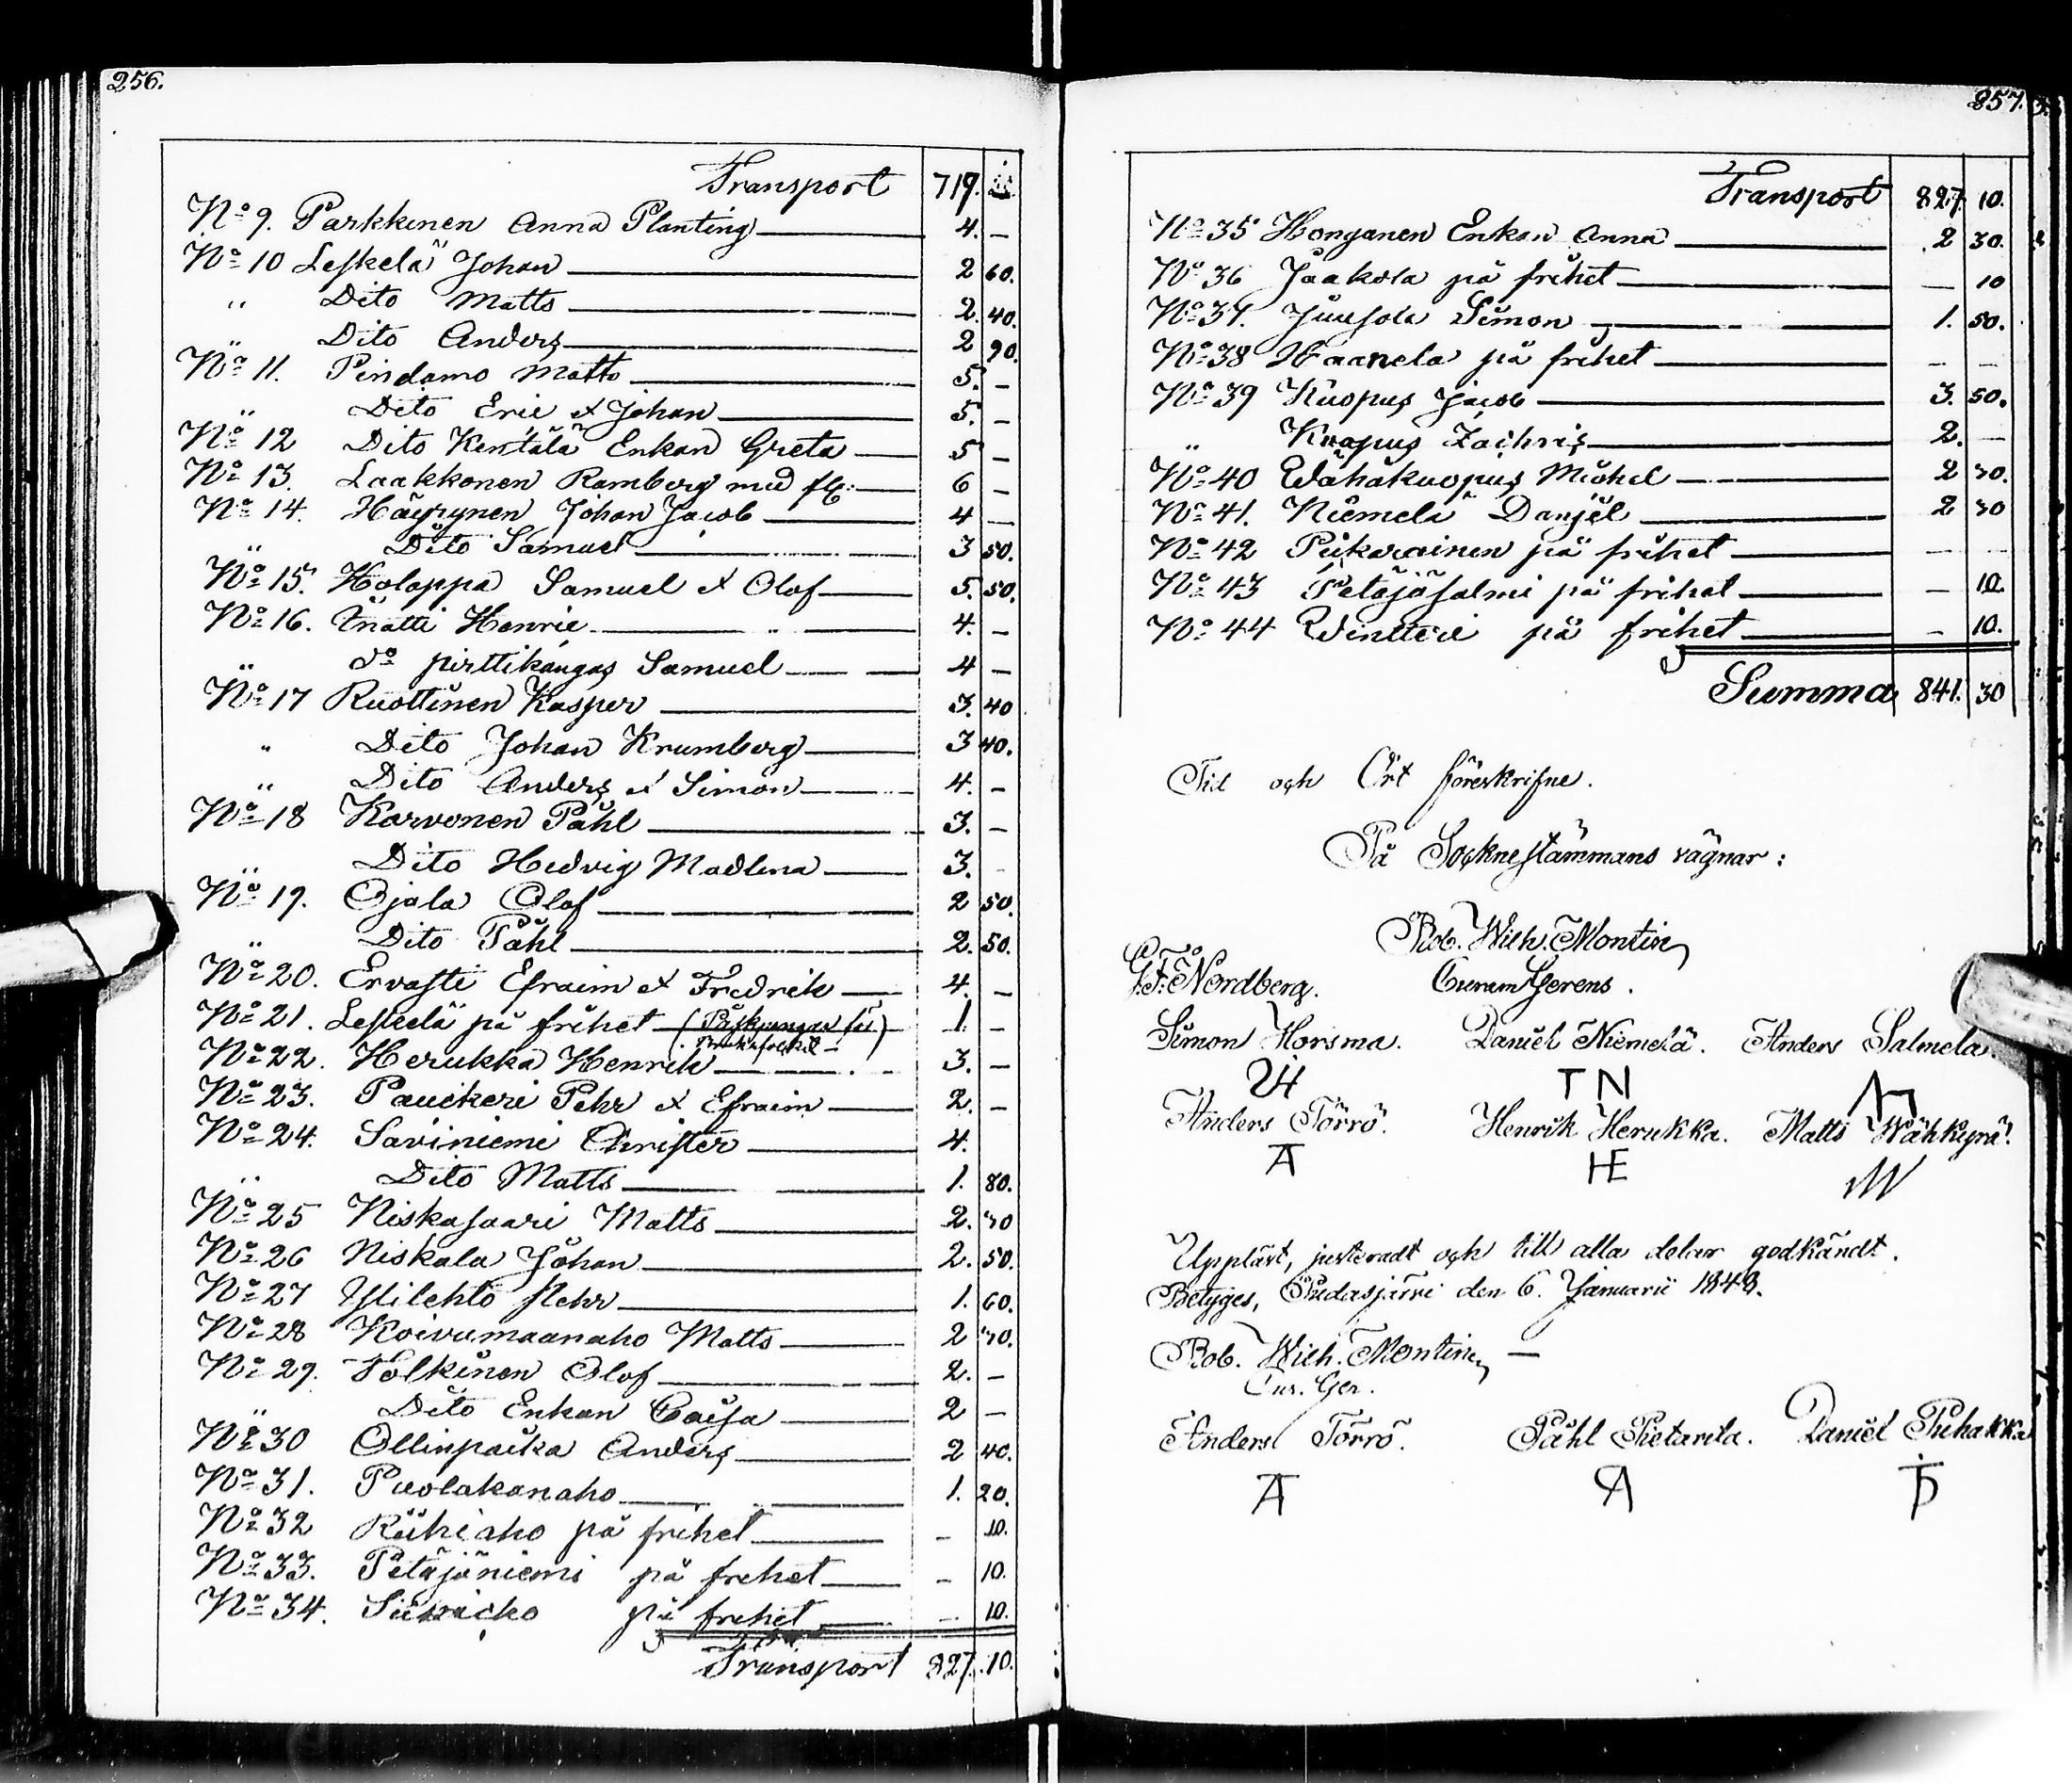 256.
Transport 719.
No 9. Parkkinen Anna Planting 4. –
No 10 Leskelä Johan 2 60.
" Dito Matts 2. 40.
" Dito Anders 2 90.
No 11. Pindamo Matts 5. –
" Dito Eric et Johan 5. –
No 12 Dito Kentälä Enkan Greta 5 –
No 13. Laakkonen Ramberg med fl: 6 –
No 14. Häyrynen Johan Jacob 4 –
" Dito Samuel 3 50.
No 15. Holappa Samuel et Olof 5. 50.
No 16. Änätti Henric 4. –
" do pirttikangas Samuel 4 –
No 17 Ruottinen Kasper 3. 40
" Dito Johan Krumberg 3 40.
" Dito Anders et Simon 4. –
No 18 Karvonen Påhl 3. –
" Dito Hedvig Madlena 3. –
No 19. Ojala Olof 2 50.
" Dito Påhl 2. 50.
No 20. Ervasti Efraim et Fredrik 4. –
No 21. Leskelä på frihet 1. –
No 22. Herukka Henrik 3. –
No 23. Pauckeri Pehr et Efraim 2. –
No 24. Saviniemi Christer 4.
" Dito Matts 1. 80.
No 25 Niskasaari Matts 2. 70
No 26 Niskala Johan 2. 50.
No 27 Ylilehto Pehr 1. 60.
No 28 Koivumaanaho Matts 2 70.
No 29. Wolkinen Olof 2. –
" Dito Enkan Caisa 2 –
No 30 Ollinpaika Anders 2 40.
No 31. Puolakanaho 1. 20.
No 32 Riihiaho på frihet – 10.
No 33. Petäjäniemi på frihet – 10.
No 34. på frihet – 10.
Transport 827. 10.
257.
Transport 827. 10.
No 35 Honganen Enkan Anna 2 30.
No 36 Jaakola på frihet – 10
No 37. Juusola Simon 1. 50.
No 38 Haanela på frihet – –
No 39 Kuopus Jacob 3. 50.
" Kuopus Zachris 2. –
No 40 Wähäkuopus Michel 2 70.
No 41. Niemelä Danjel 2 70
No 42 Piikarainen på frihet – –
No 43 Petäjäsalmi på frihet – 10.
No 44 på frihet – 10.
Summa 841. 30
Tid och Ort föreskrifne.
På Socknestämmans vägnar:
Rob. Wilh. Montin,
G. F. Nordberg. Curam Gerens.
Simon Horsma. Daniel Niemelä. Anders Salmela.
TN
Anders Törrö. Henrik Herukka. Matts Wähkyrä.
HE
Uppläst, justeradt och till alla delar godkändt.
Betyges, Pudasjärvi den 6. Januarii 1848.
Rob. Wilh. Montin, –
Cur. Ger.
Anders Törrö. Påhl Pietarila. Daniel Puhakka